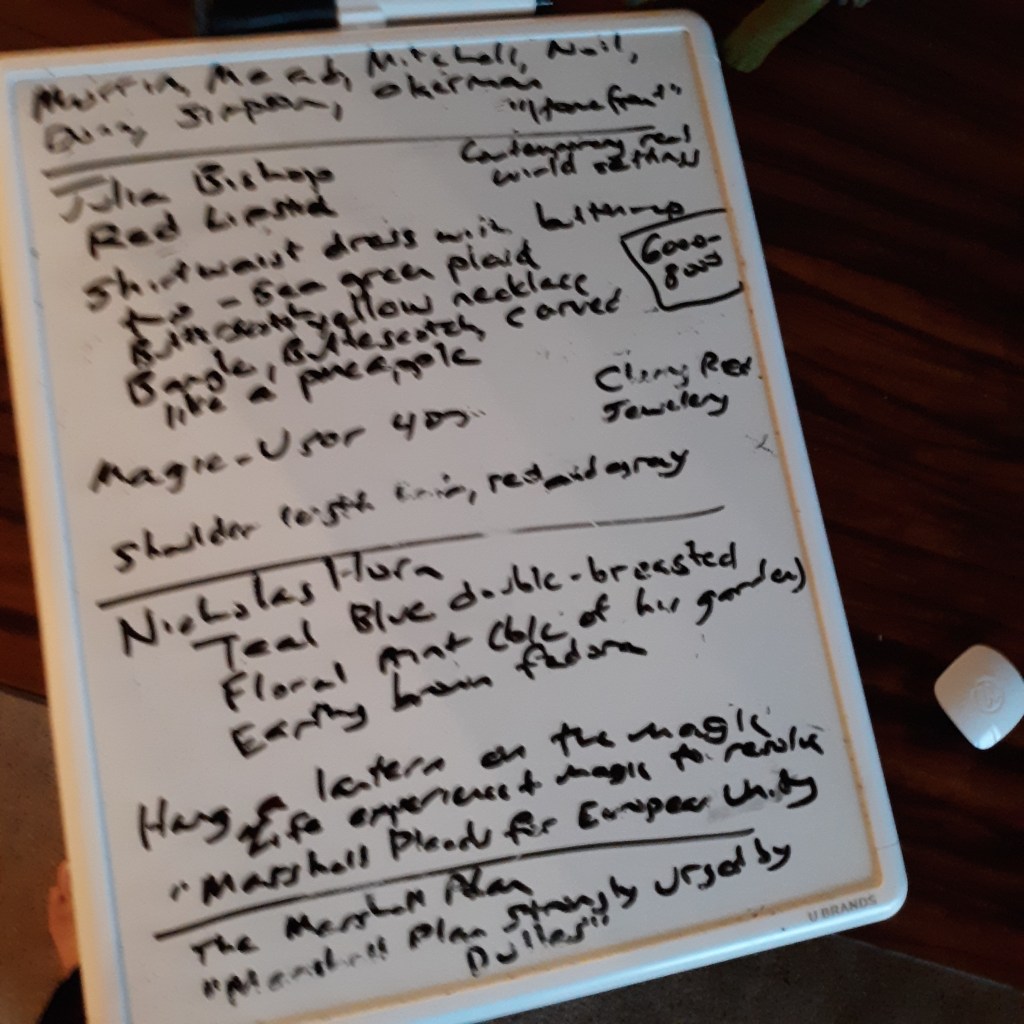 Martin, Mead, Mitchell, Nail,
Simpson, Okerman
"Homefront"
Contemporary real
world settings
Julia Bishop
Red Lipstick
Shirtwaist dress with buttons
- Sea green plaid
6000-
8000
Butterscotch yellow necklace
Bangle, Butterscotch, carved
like a pineapple
Cherry Red
Jewelery
Magic-User 40s
Shoulder length hair, red and gray
Nicholas Horn
Teal Blue double-breasted
Floral print (b/c of his garden)
Earthy brown fedora
Hang a latern on the magic
Life experience + magic to resolve
"Marshall Pleads for European Unity
The Marshall Plan
"Marshall" Plan Strongly Urged by
Dulles"
U BRANDS